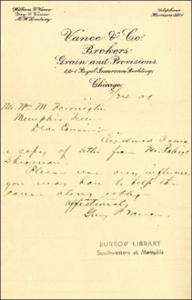 William W. Vance
Guy P. Vance
Telephone
Vance & Co.
Brokers
Grain and Provisions.
Royal Insurance Building,
Chicago
Mr. Wm. M. Farrington
Memphis Tenn.
Dear Cousin:
Enclosed I send
a copy of letter from Mr. Robert
Please use any influence
you may have to help the
cause along
Affectionately
Guy P. Vance
BURROW LIBRARY
Southwestern at Memphis